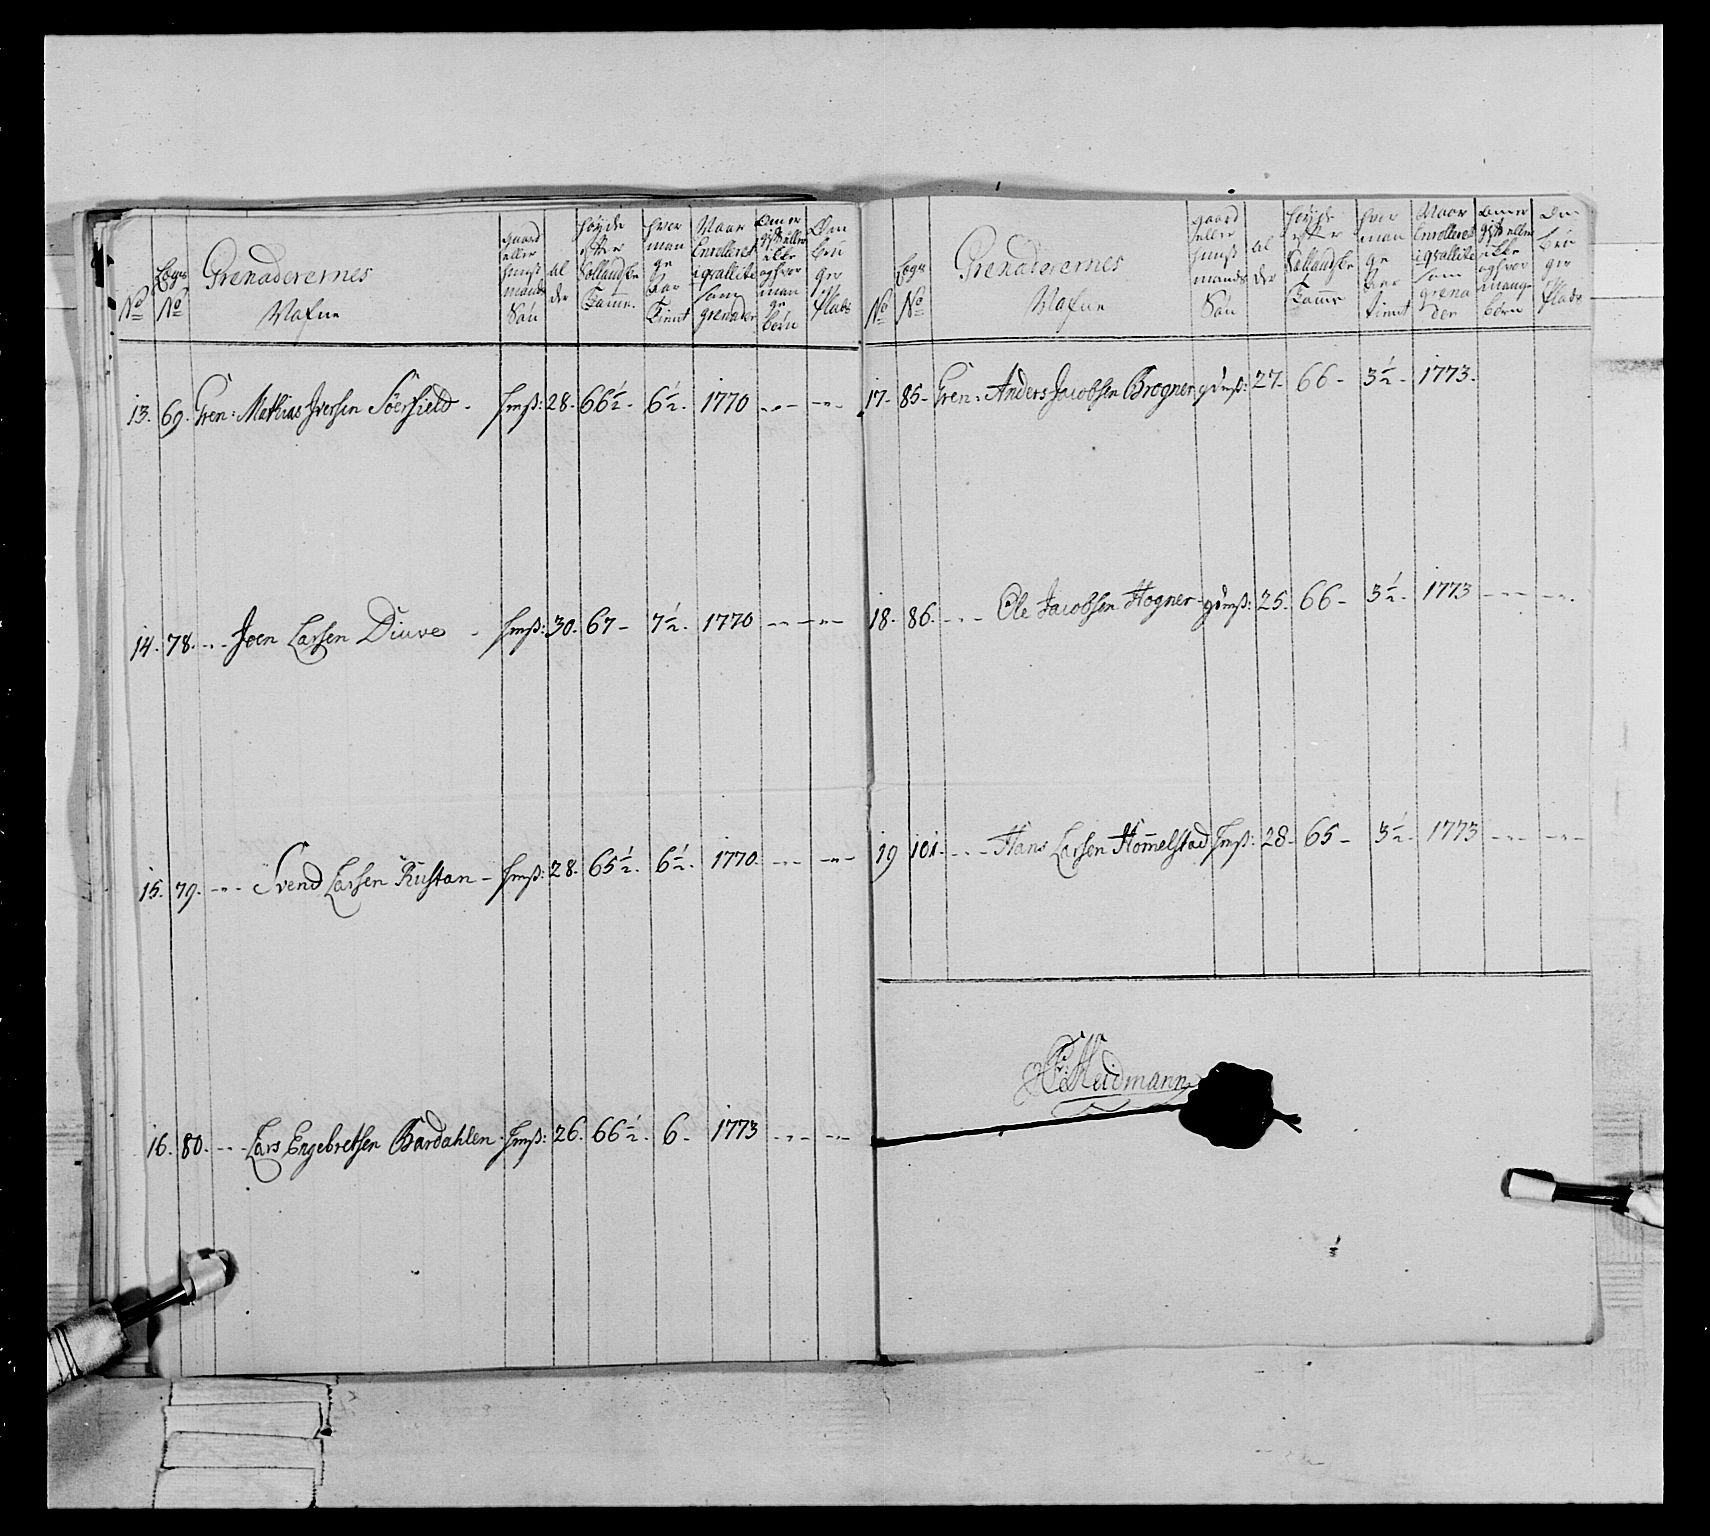 No
Legs No
Grenaderernes
Nafne
gaard eller huus mands Søn
al der
høyde efter Sollandske
hvor man ge Aar Tient
Naar Enrolleret i qvallite som grenader
Om er gift eller ikke og hvor man ge børn
Om Bru ger plads
13. 69. Gren: Mathias Iversen Söerfield - hmß: 28. 66½. 6½. 1770 -"- -"-
14. 78. -"- Joen Larsen Diuve - hmß: 30. 67- 7½. 1770 -"- -"-
15. 79. -"- Svend Larsen Rustan - hmß: 28. 65½. 6½. 1770. -"- -"-
16. 80. -"- Lars Engebretsen Bardahlen. hmß: 26. 66½. 6- 1773 -"- -"-
No
Legs No
Grenaderernes
Nafne
gaard eller huus mands Søn
al der
høyde efter Sollandske
hvor man ge Aar tient
Naar Enrolleret i qvallite som grena der
Om er gift eller ikke og hvor mange børn
Om bru ger plads
17- 85- Gren: Anders Jacobsen Brogner gdmß: 27- 66- 3½- 1773.
18. 86. -"- Ole Jacobsen Hogner - gdmß: 25. 66- 3½. 1773 -"- -"-
19 101. -"- Hans Larsen Hom̄elstad hmß: 28- 65- 3½. 1773 -"- -"-
Heidmann